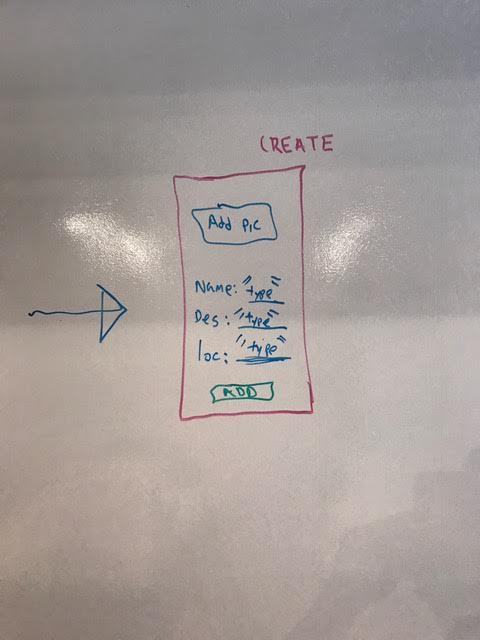 CREATE
Add Pic
Name: "type"
Des: "type"
loc: "type"
ADD